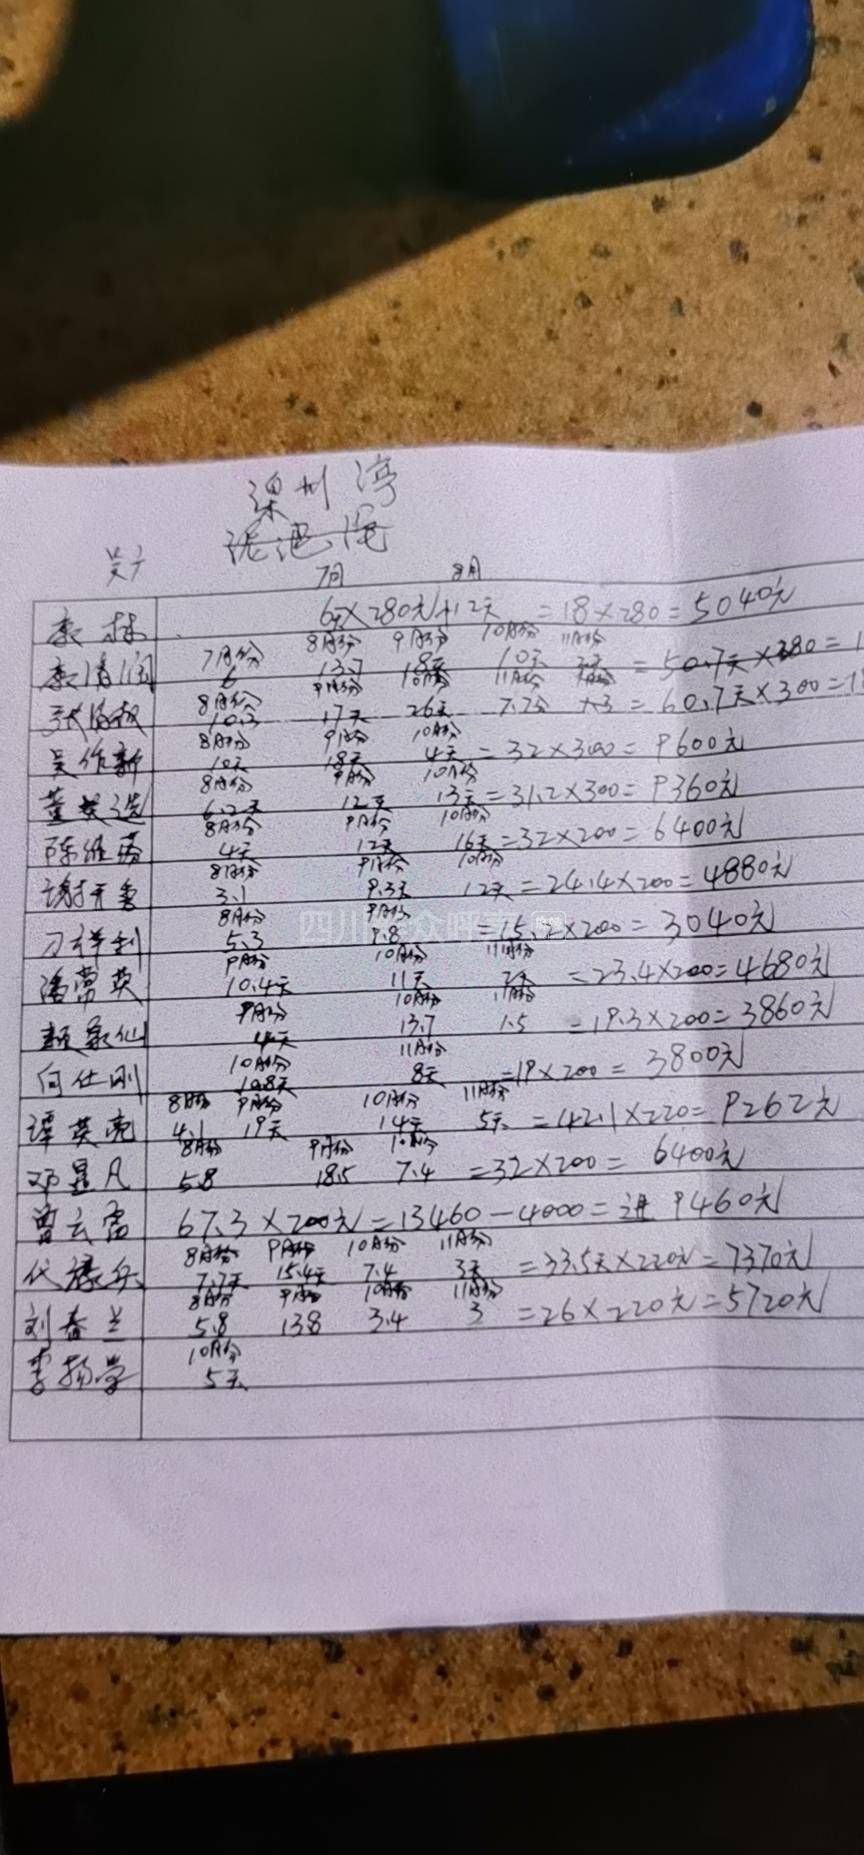 深圳湾
7月 8月
6天×280元+12天=18×280=5040元
7月份 8月份 9月份 10月份 11月份
6 13.7 18天 10天 =50.7天×280=1
8月份 9月份 10月份 11月份
10.3 17天 26天 +3=60.7天×300=1
8月份 9月份 10月份
吴作新 10天 18天 4天=32×300=9600元
8月份 9月份 10月份
董英选 6.2天 12天 13天=31.2×300=9360元
8月份 9月份 10月份
陈维 4天 12天 16天=32×200=6400元
8月份 9月份 10月份
3.1 9.3天 12天=24.4×200=4880元
8月份 9月份
刁祥利 5.3 9.8 ×200=3040元
9月份 10月份 11月份
潘常英 10.4天 11天 2天=23.4×200=4680元
9月份 10月份 11月份
颜家仙 4天 13.7 1.5 =19.3×200=3860元
10月份 11月份
何仕刚 10.8天 8天=19×200=3800元
8月份 9月份 10月份 11月份
谭英亮 4.1 19天 14天 5天=42.1×220=9262元
8月份 9月份 10月份
邓显凡 5.8 18.5 7.4 =32×200=6400元
曾云富 67.3×200元=13460-4000=进9460元
8月份 9月份 10月份 11月份
代禄兵 7.7天 15.4天 7.4 3天 =33.5天×220元=7370元
8月份 9月份 10月份 11月份
刘春兰 5.8 13.8 3.4 3 =26×220元=5720元
10月份
李扬学 5天